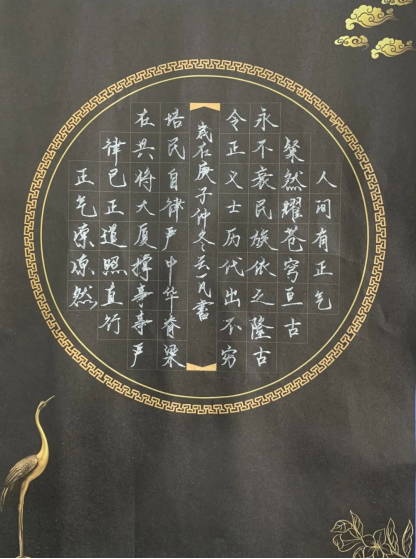 人间有正气
粲然曜苍穹亘古
永不衰民族依之隆古
今正义士历代出不穷
岁在庚子仲冬云凡书
培民自律严中华脊梁
在共将大厦撑亭亭严
律己正道照直行
正气凛凛然